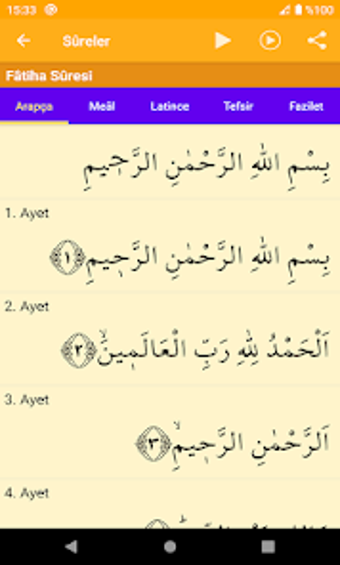 15:33 %100
Sûreler
Fâtiha Sûresi
Arapça Meâl Latince Tefsir Fazilet
بِسْمِ اللهِ الرَّحْمٰنِ الرَّحٖيمِ
1. Ayet
بِسْمِ اللهِ الرَّحْمٰنِ الرَّحٖيمِ ﴿١﴾
2. Ayet
اَلْحَمْدُ لِلّٰهِ رَبِّ الْعَالَمٖينَۙ ﴿٢﴾
3. Ayet
اَلرَّحْمٰنِ الرَّحٖيمِۙ ﴿٣﴾
4. Ayet